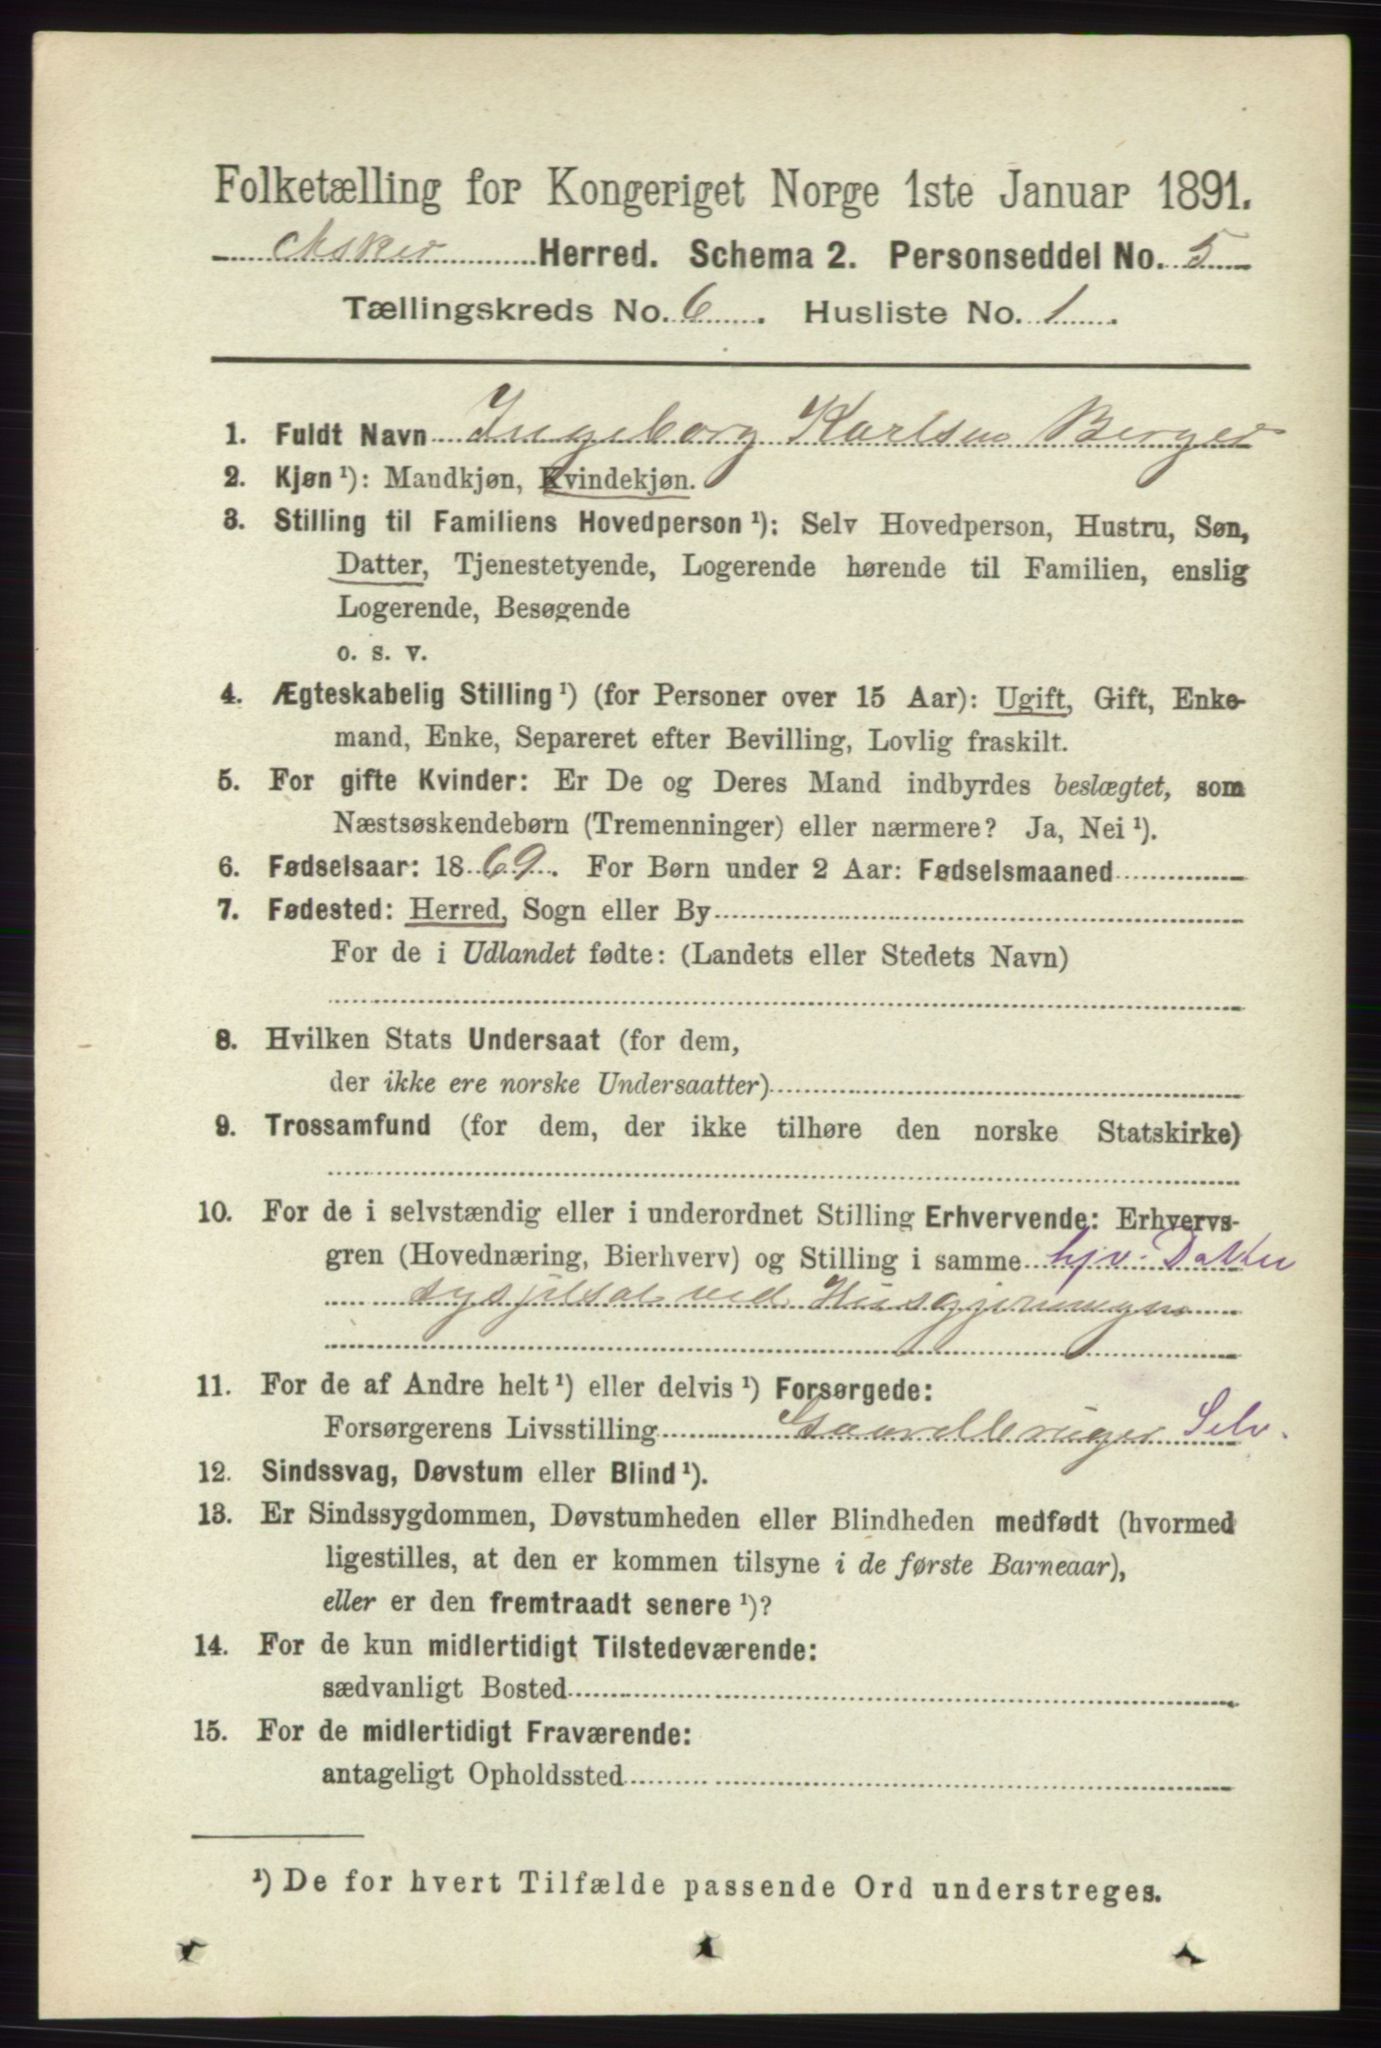 Folketælling for Kongeriget Norge 1ste Januar 1891.
Asker Herred. Schema 2. Personseddel No. 5
Tællingskreds No. 6. Husliste No. 1.
1. Fuldt Navn Ingeborg Karlsen Berger
2. Kjøn ¹): Mandkjøn, Kvindekjøn.
3. Stilling til Familiens Hovedperson ¹): Selv Hovedperson, Hustru, Søn,
Datter, Tjenestetyende, Logerende hørende til Familien, enslig
Logerende, Besøgende
o. s. v.
4. Ægteskabelig Stilling ¹) (for Personer over 15 Aar): Ugift, Gift, Enke-
mand, Enke, Separeret efter Bevilling, Lovlig fraskilt.
5. For gifte Kvinder: Er De og Deres Mand indbyrdes beslægtet, som
Næstsøskendebørn (Tremenninger) eller nærmere? Ja, Nei ¹).
6. Fødselsaar: 1869. For Børn under 2 Aar: Fødselsmaaned
7. Fødested: Herred, Sogn eller By
For de i Udlandet fødte: (Landets eller Stedets Navn)
8. Hvilken Stats Undersaat (for dem,
der ikke ere norske Undersaatter)
9. Trossamfund (for dem, der ikke tilhøre den norske Statskirke)
10. For de i selvstændig eller i underordnet Stilling Erhvervende: Erhvervs-
gren (Hovednæring, Bierhverv) og Stilling i samme hjv. Datter
sysselsat ved Husgjerningen
11. For de af Andre helt ¹) eller delvis ¹) Forsørgede:
Forsørgerens Livsstilling Gaardbruger Selv.
12. Sindssvag, Døvstum eller Blind ¹).
13. Er Sindssygdommen, Døvstumheden eller Blindheden medfødt (hvormed
ligestilles, at den er kommen tilsyne i de første Barneaar),
eller er den fremtraadt senere ¹)?
14. For de kun midlertidigt Tilstedeværende:
sædvanligt Bosted
15. For de midlertidigt Fraværende:
antageligt Opholdssted
¹) De for hvert Tilfælde passende Ord understreges.